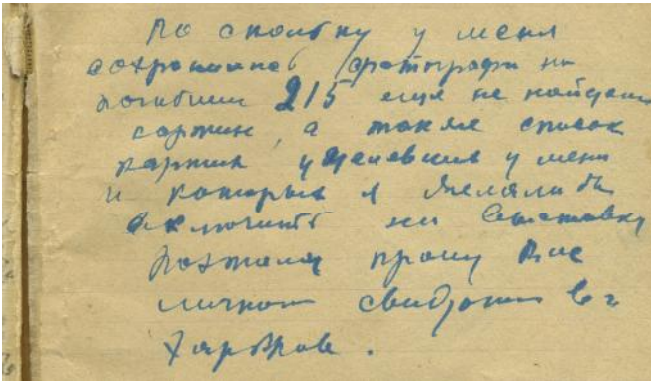 По скольку у меня
сохранились фотографи на
погибших 215 еще не найден
картин, а также список
картин уцелевших у меня
и которых я желал бы
включить на выставку
поэтому прошу Вас
личного свидания в г
Харькове.